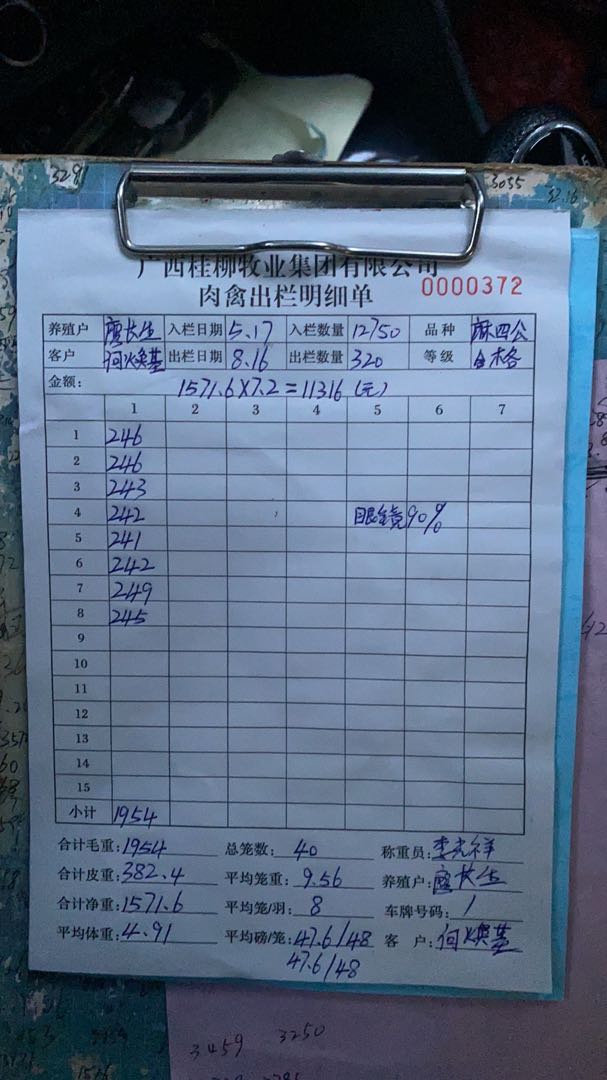 329
3055
32.16
广西桂柳牧业集团有限公司
肉禽出栏明细单
0000372
养殖户 廖长生 入栏日期 5.17 入栏数量 12750 品种 麻四公
客户 何焕基 出栏日期 8.16 出栏数量 320 等级 合格
金额: 1571.6×7.2=11316 (元)
1 2 3 4 5 6 7
1 246
2 246
3 243
4 242 眼镜90%
5 241
6 242
7 249
8 245
9
10
11
12
13
14
15
小计 1954
合计毛重: 1954 总笼数: 40 称重员: 李光祥
合计皮重: 382.4 平均笼重: 9.56 养殖户: 廖长生
合计净重: 1571.6 平均笼/羽: 8 车牌号码: /
平均体重: 4.91 平均磅/笼: 47.6/48 客户: 何焕基
47.6/48
3459 3250